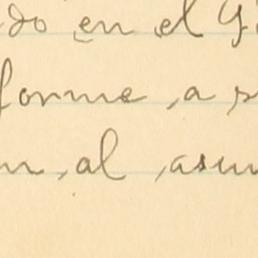 do en el
forme, a
n, al, asun